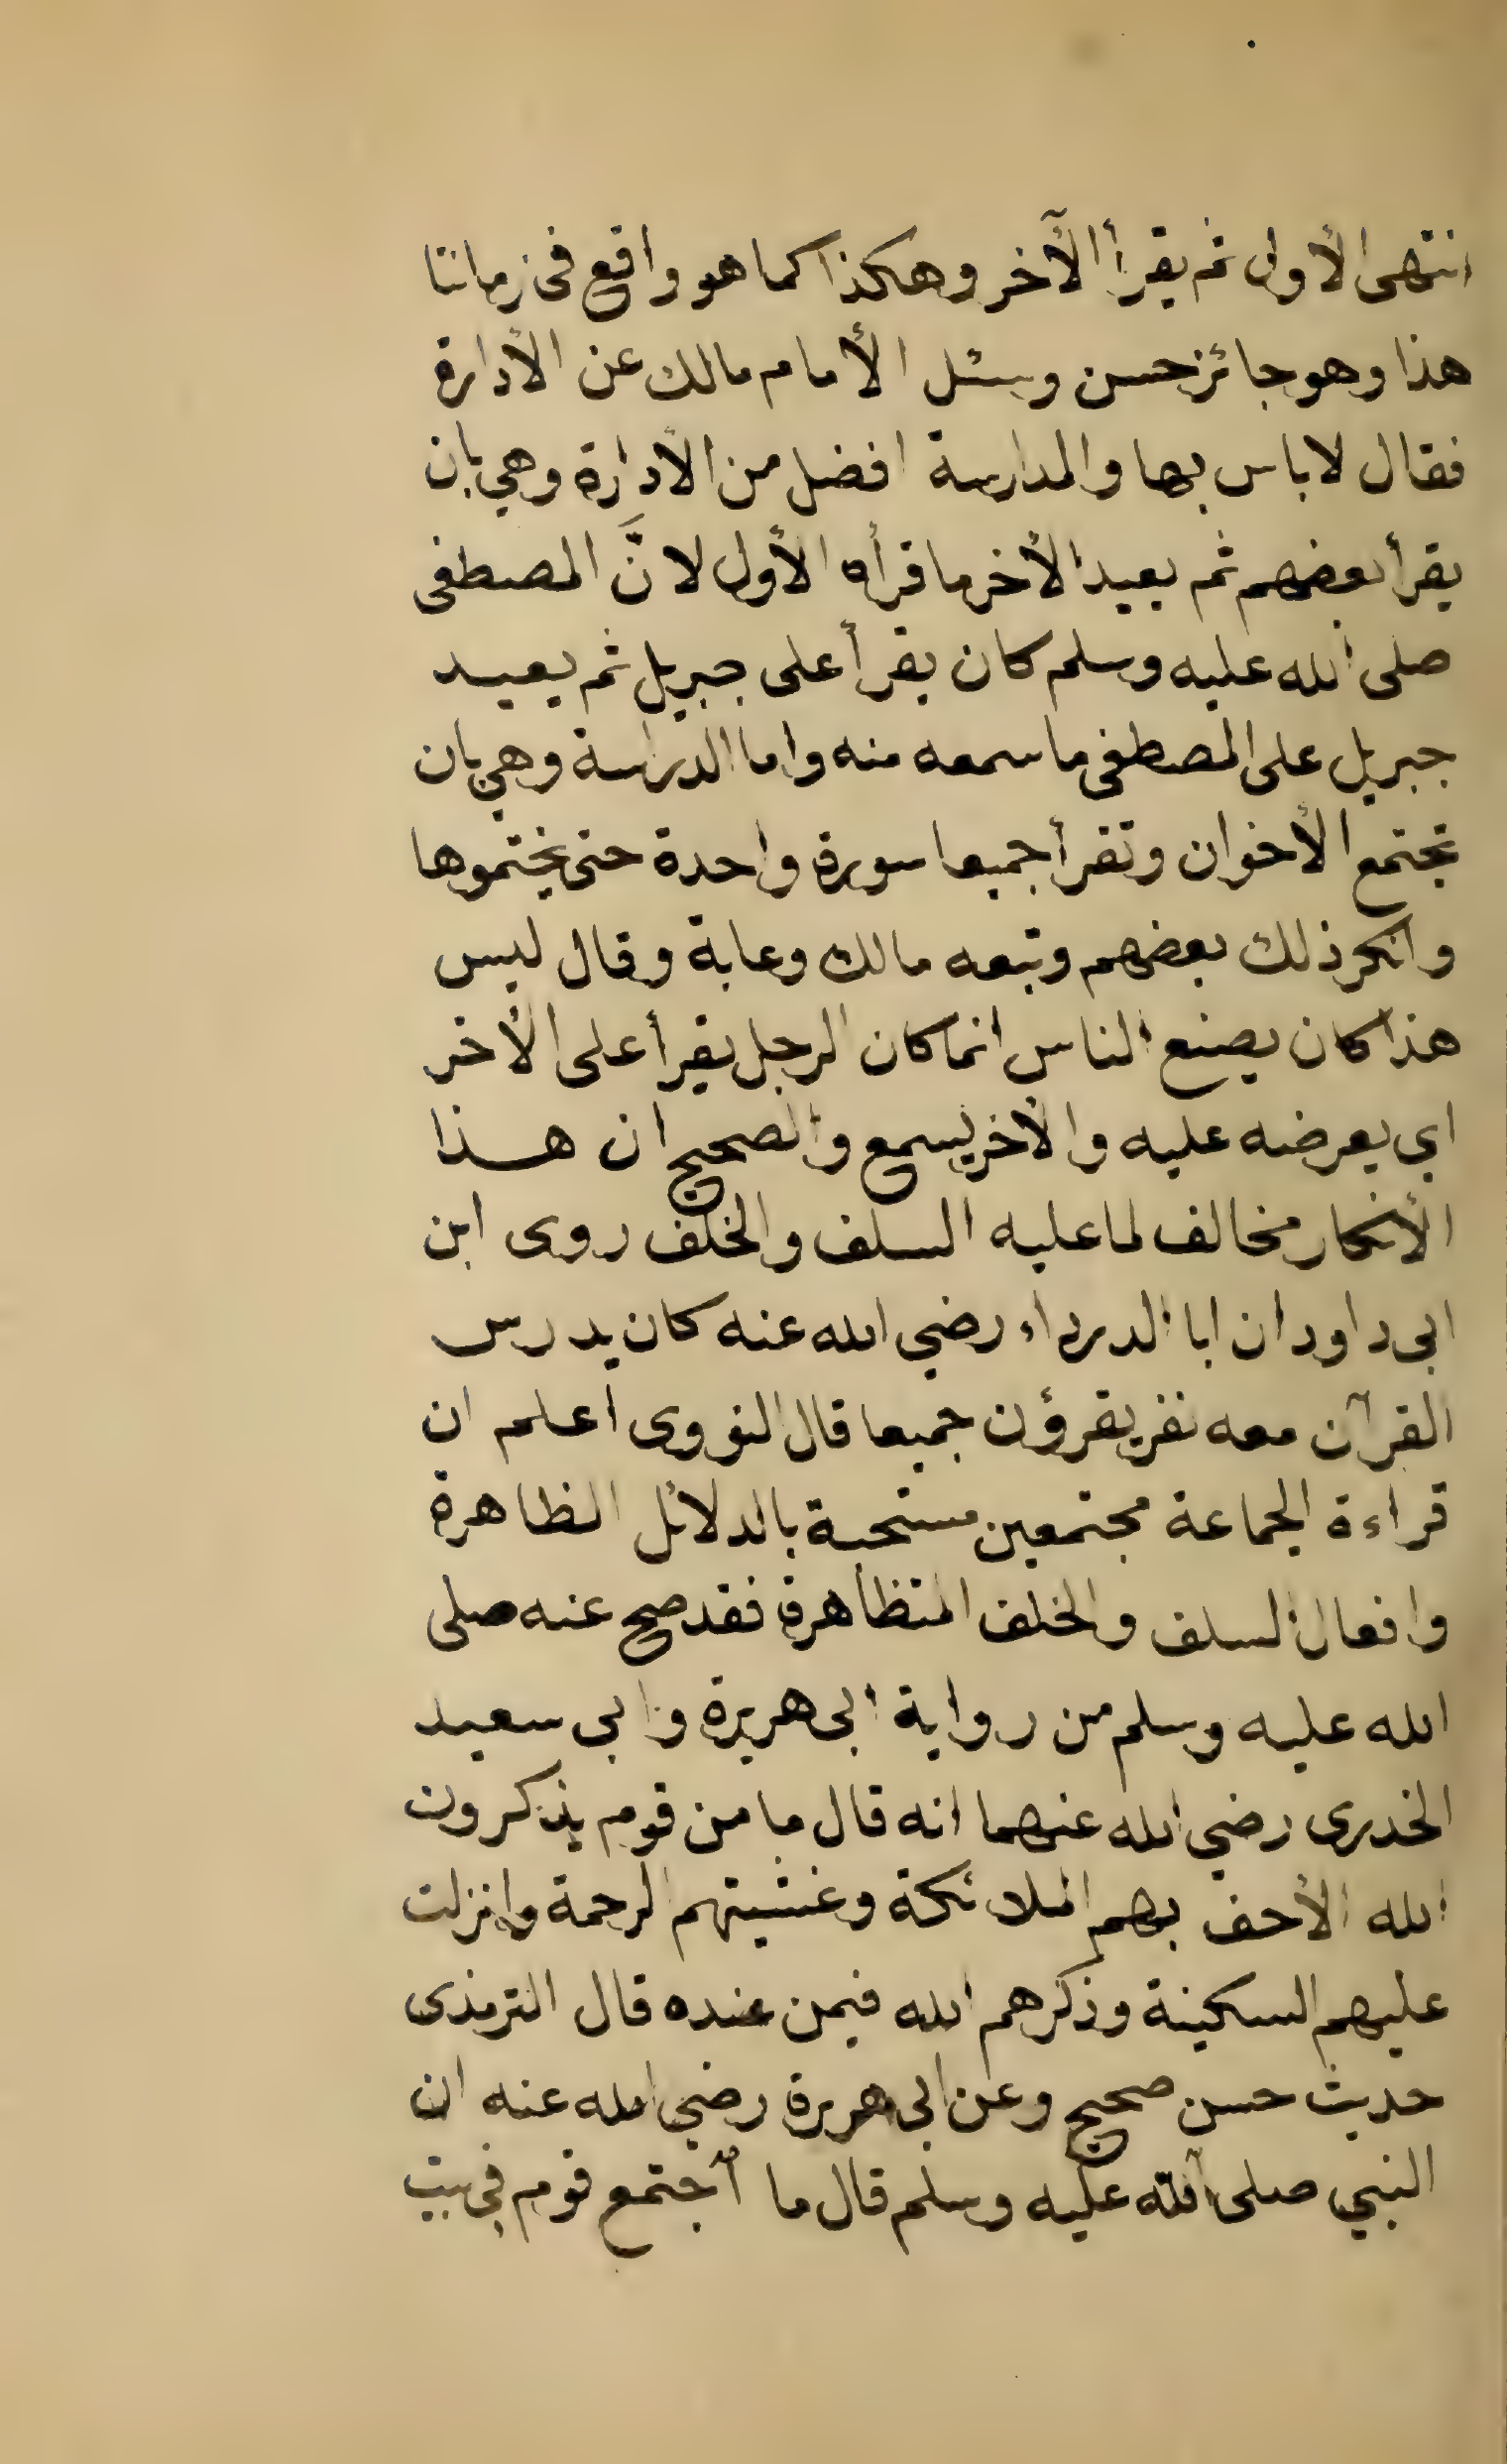 انتهى الأول ثم يقرأ الآخر وهكذا كما هو واقع فى زماننا
هذا وهو جائز حسن وسئل الأمام مالك عن الأدارة
فقال لا باس بها والمدارسة افضل من الأدارة وهي بان
يقرأ بعضهم ثم يعيد الأخر ما قرأه الأول لانَّ المصطفى
صلى الله عليه وسلم كان يقرأ على جبريل ثم يعيد
جبريل على المصطفى ما سمعه منه واما الدراسة وهي بان
تجتمع الأخوان وتقرأ جميعا سورة واحدة حتى يختموها
وانكر ذلك بعضهم وتبعه مالك وعابة وقال ليس
هذا كان يصنع الناس انما كان الرجل يقرأ على الأخر
اي يعرضه عليه والأخر يسمع والصحيح ان هذا
الأنكار مخالف لما عليه السلف والخلف روى ابن
ابى داود ان ابا الدرداء رضي الله عنه كان يدرس
القرآن معه نفر يقرؤن جميعا قال النووى اعلم ان
قراءة الجماعة مجتمعين مستحبة بالدلائل الظاهرة
وافعال السلف والخلف المتظاهرة فقد صح عنه صلى
الله عليه وسلم من رواية ابى هريرة وابى سعيد
الخدرى رضي الله عنهما انه قال ما من قوم يذكرون
الله الأحف بهم الملائكة وغشيتهم الرحمة وانزلت
عليهم السكينة وذكرهم الله فيمن عنده قال الترمذى
حديث حسن صحيح وعن ابى هريرة رضي الله عنه ان
النبي صلى الله عليه وسلم قال ما اجتمع قوم في بيت